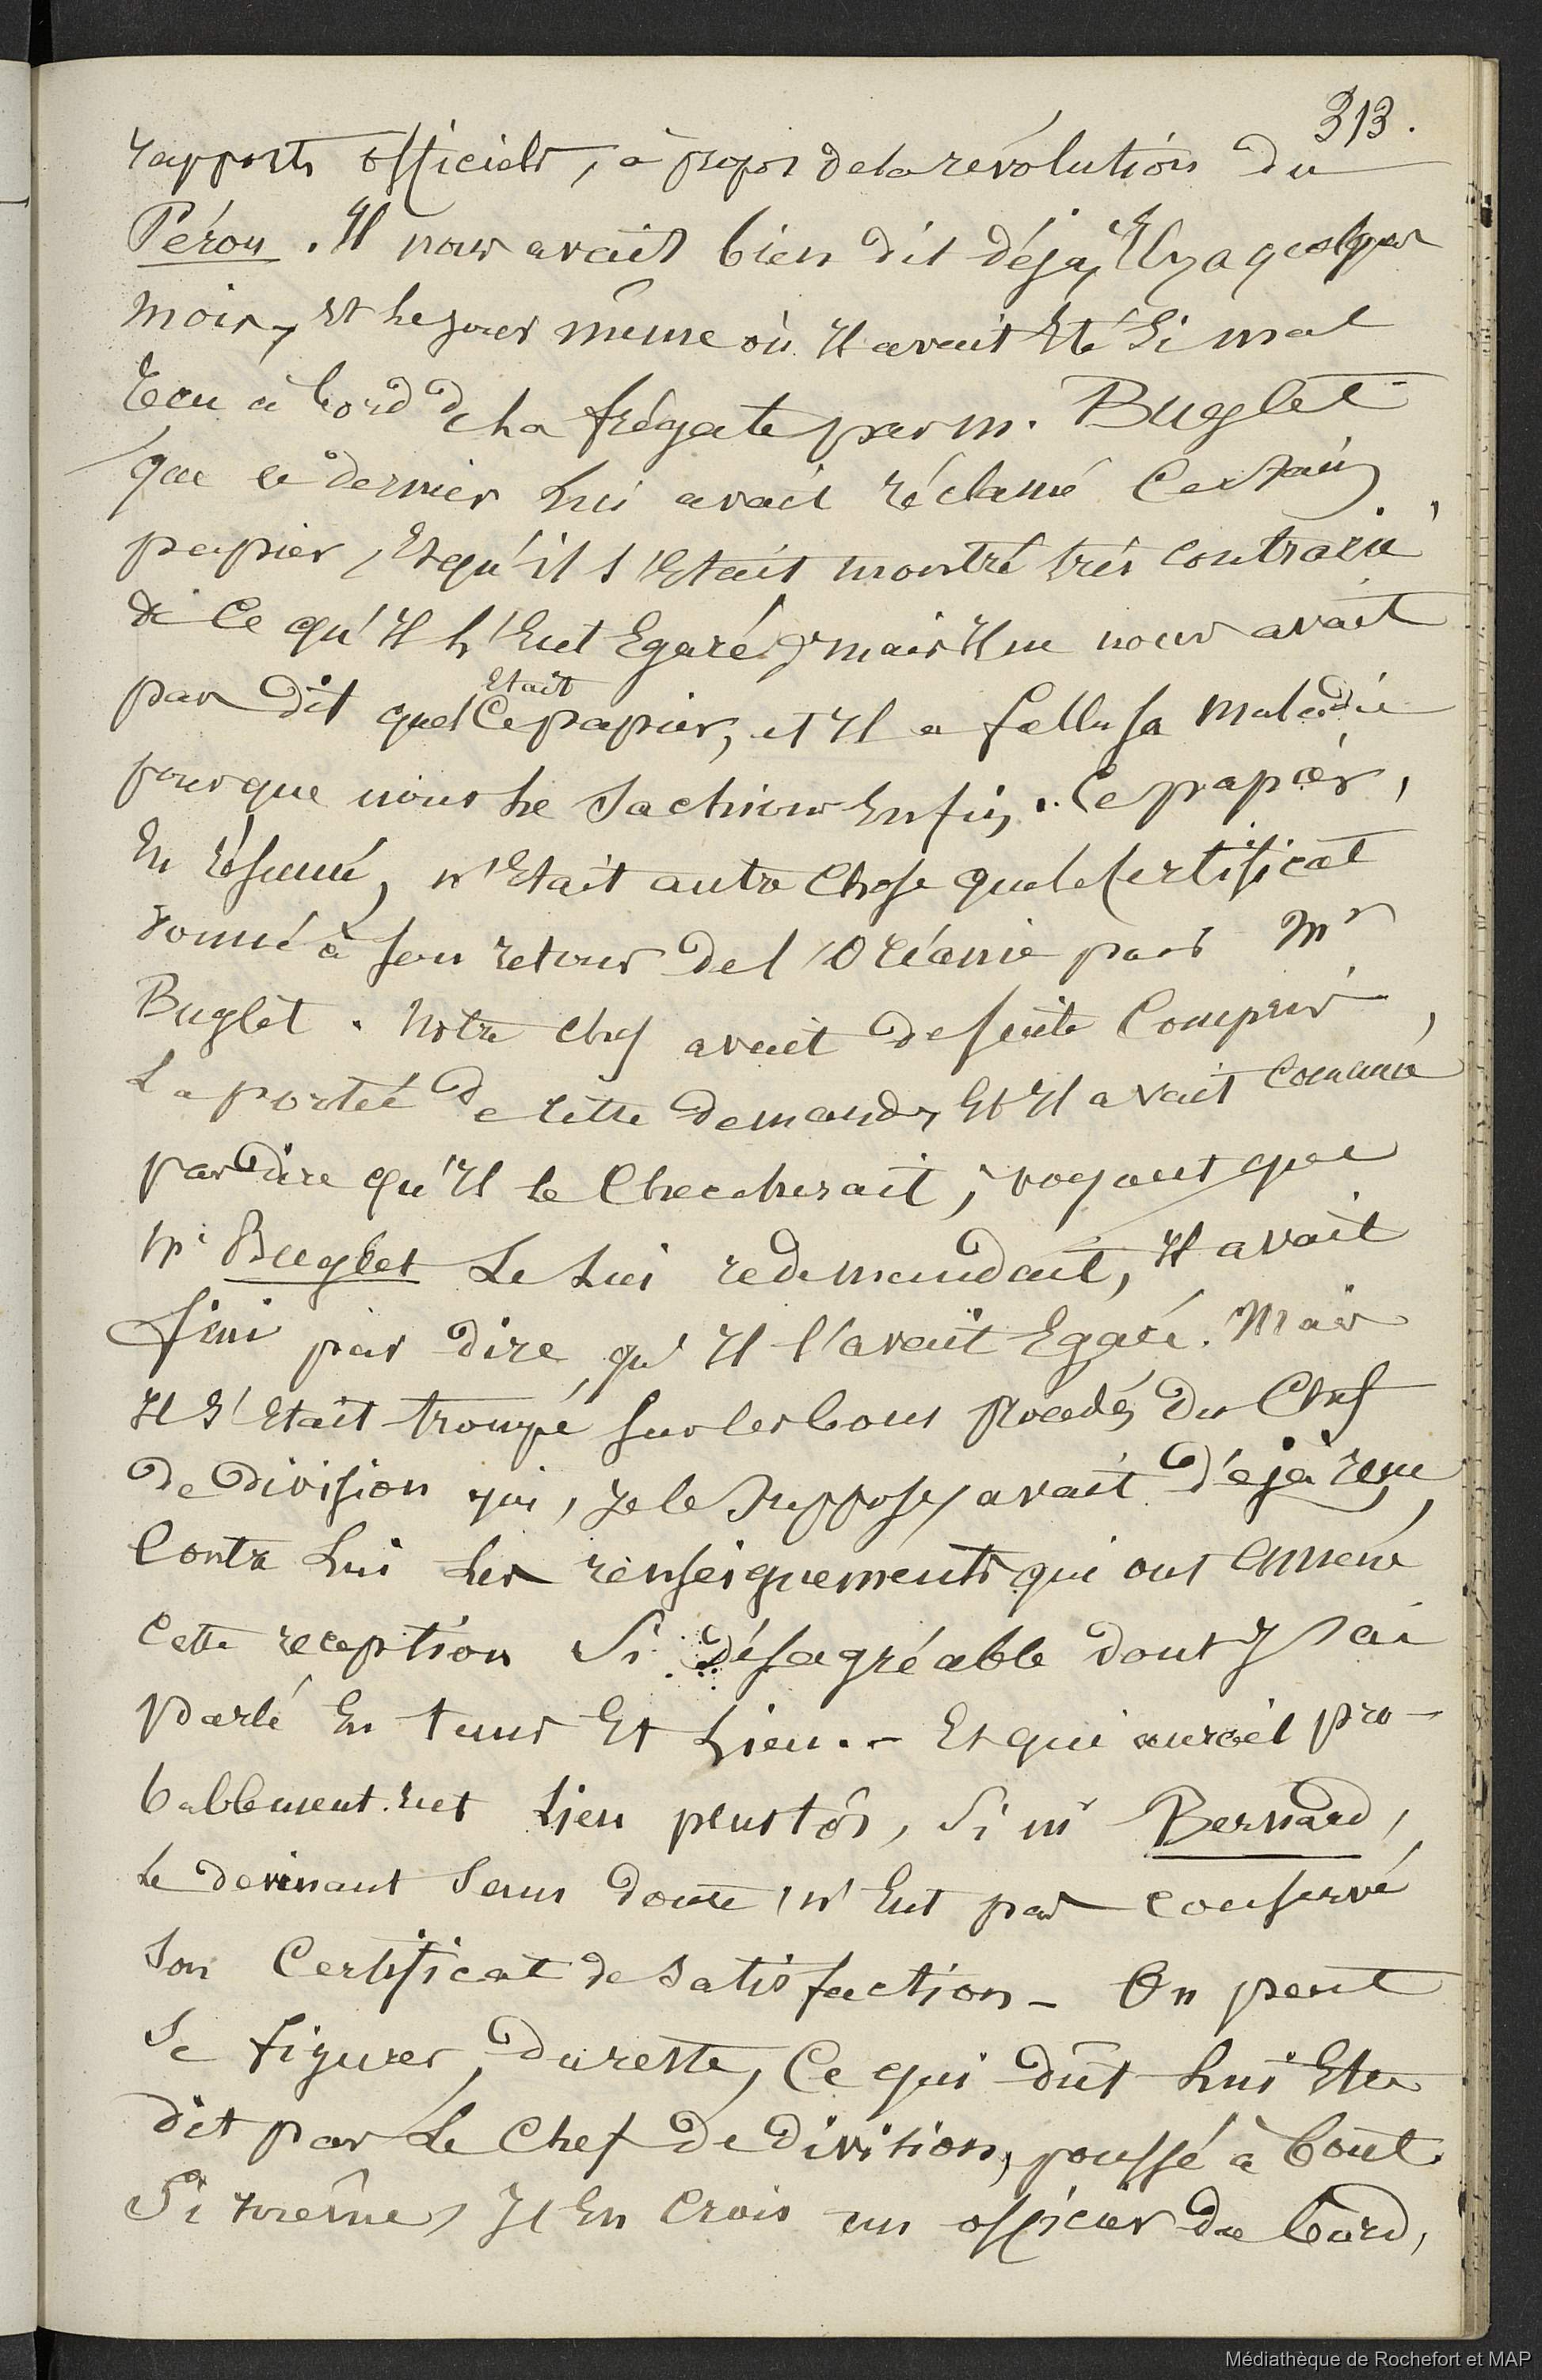 313.
rapports officiels, à propos de la révolution du
Pérou. Il nous avait bien dit déjà, Il y a quelques
mois, et le jour même où il avait été si mal
recu à bord de la frégate par m. Buglet
que ce dernier lui avait réclamé certain
papier, et qu'il s'était montré très contrarié
de ce qu'il l'eut égaré; mais il ne nous avait
pas dit quel était ce papier, et il a fallu sa maladie
pour que nous le sachions enfin. Ce papier,
en résumé, n'était autre chose que le certificat
donné à son retour de l'Océanie par Mr
Buglet. Notre chef avait de suite compris
la portée de cette demande, et il avait commencé
par dire qu'il le chercherait; voyant que
Mr Buglet le lui redemandait, il avait
fini par dire qu'il l'avait égaré. Mais
il s'était trompé sur les bons procédés du chef
de division qui, je le suppose, avait déjà reçu
contre lui les renseignements qui ont amené
cette reception si désagréable dont j'ai
parlé en tems et lieu. - Et qui aurait pro-
bablement eut lieu plustôt, si mr Bernard,
le devinant sans doute, n'eut pas conservé
son certificat de satisfaction - On peut
se figurer, du reste, ce qui dût lui être
dit par le chef de division, poussé à bout
Si même, j'en crois un officier du bord,
Médiathèque de Rochefort et MAP